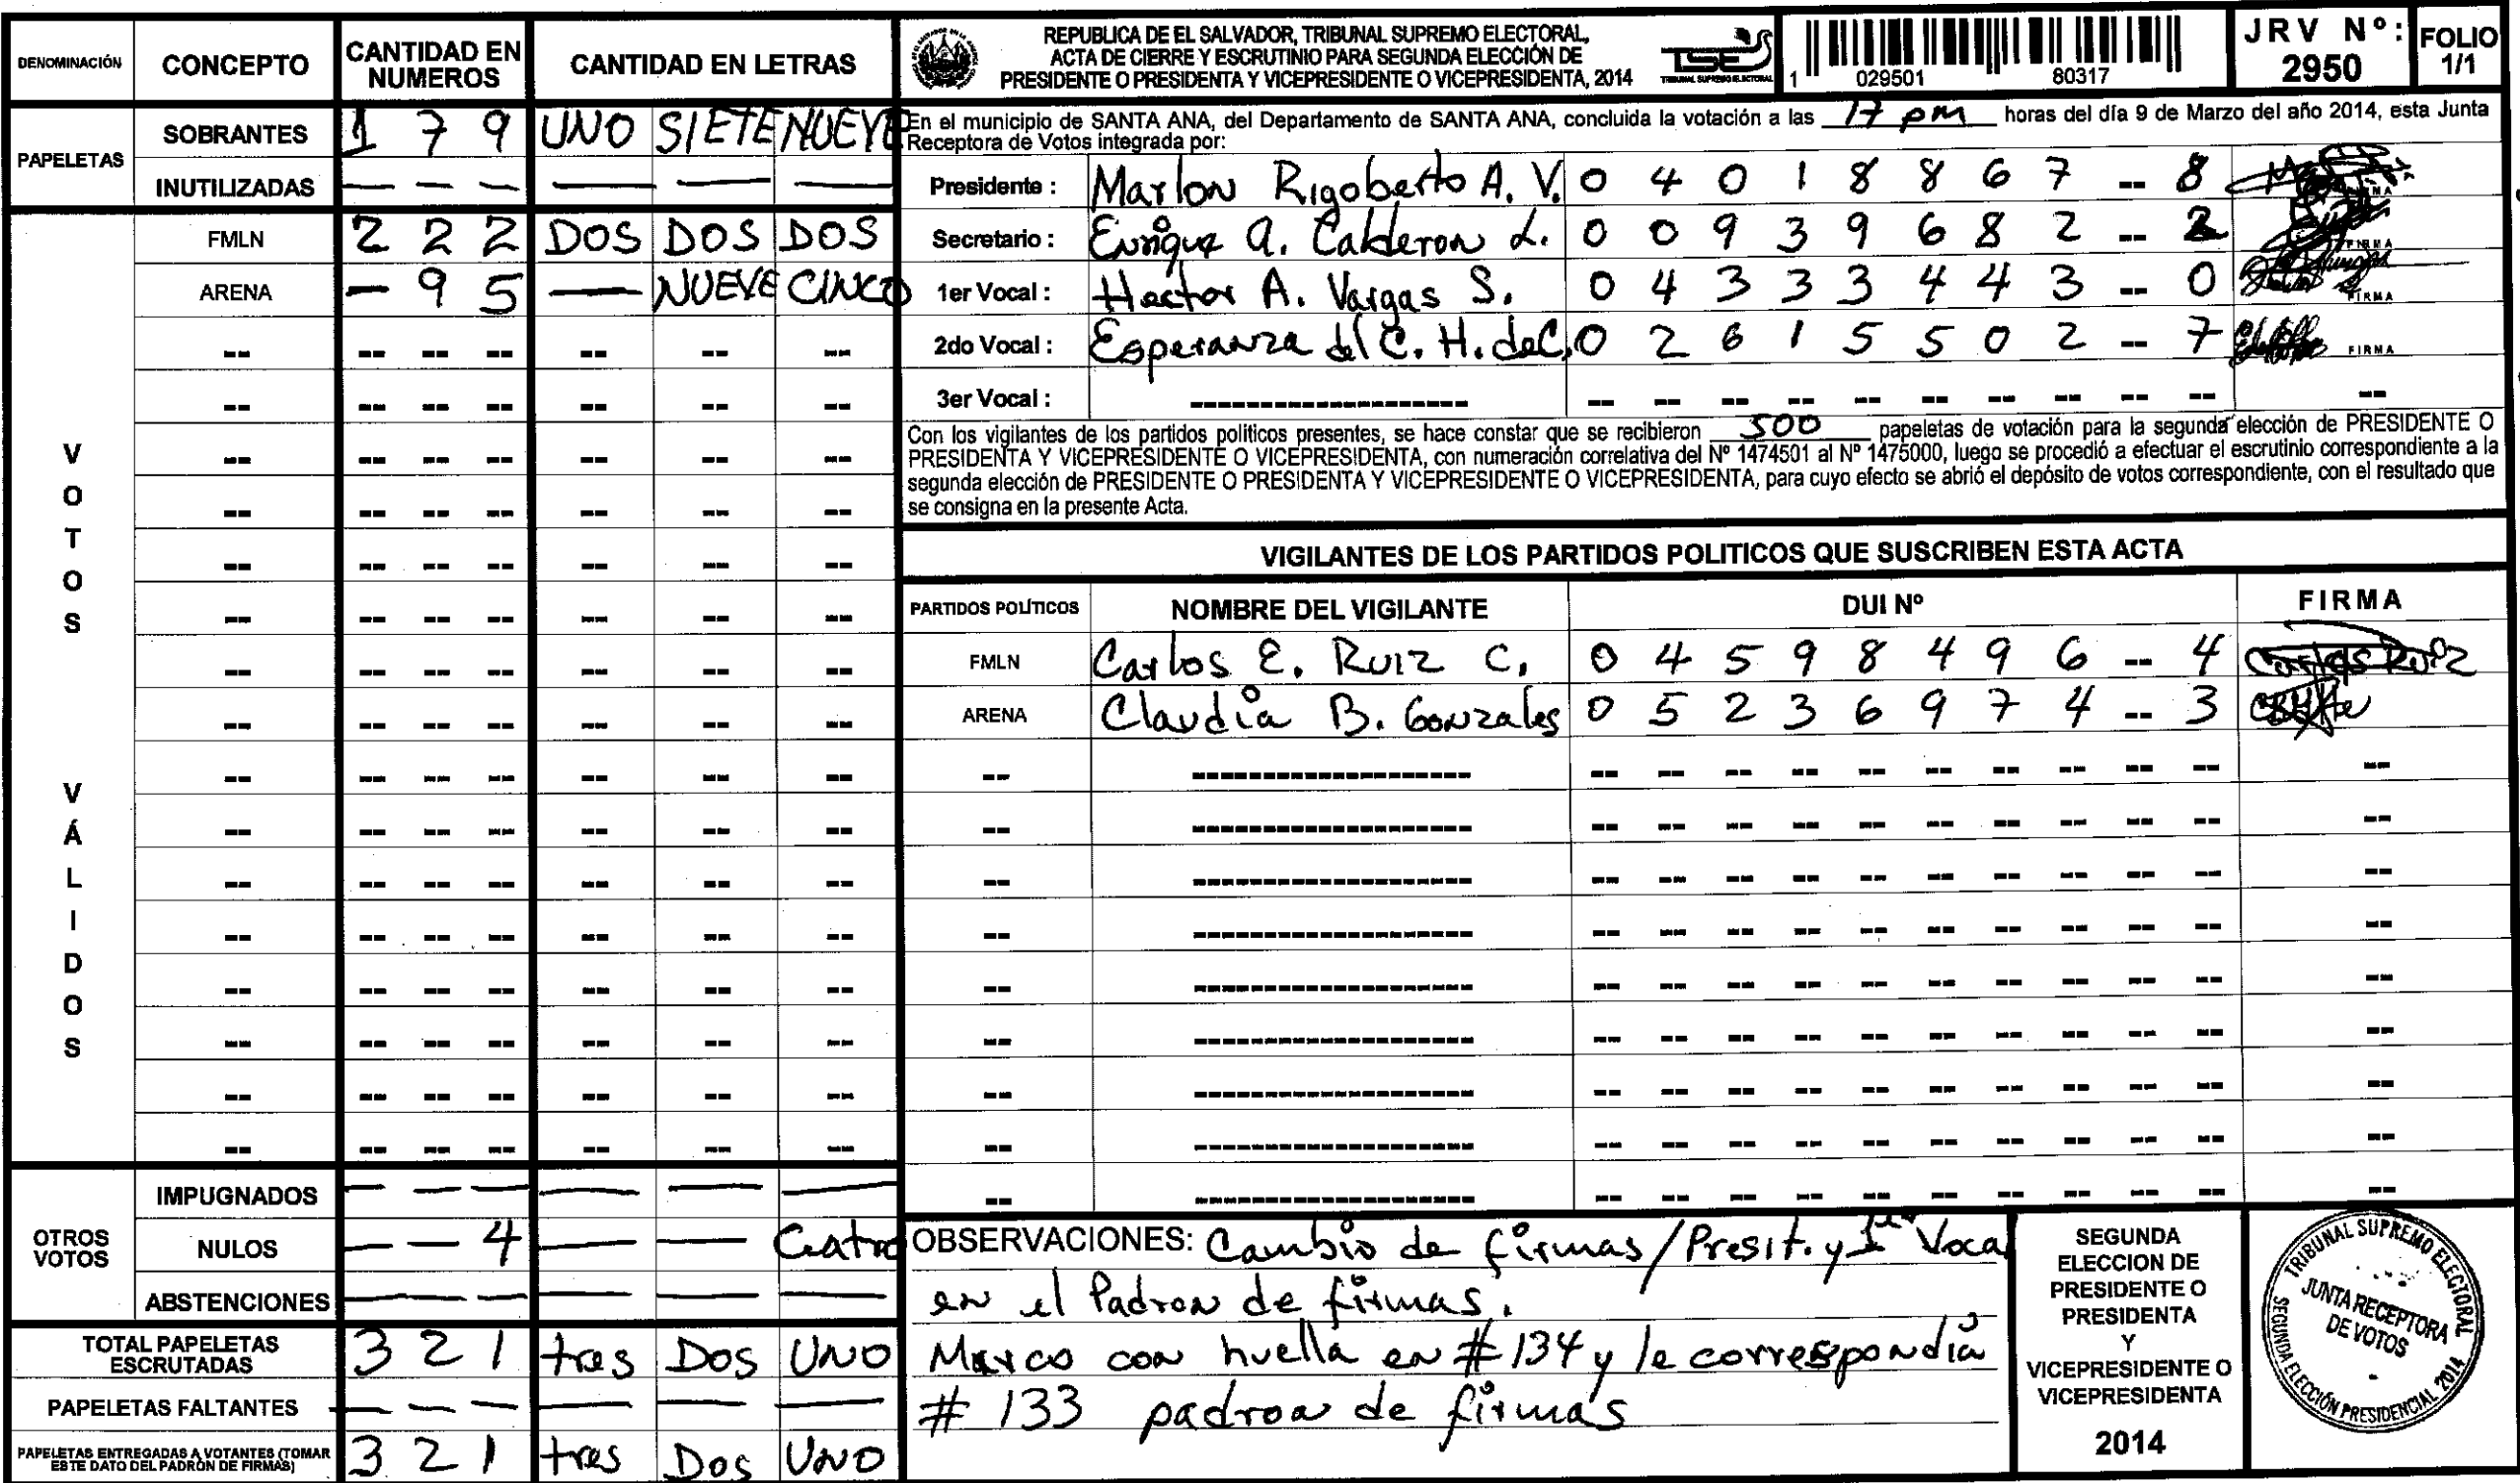 DENOMINACIÓN CONCEPTO CANTIDAD EN NUMEROS CANTIDAD EN LETRAS
PAPELETAS
SOBRANTES 1 7 9 UNO SIETE NUEVE
INUTILIZADAS — — — — — —
VOTOS VÁLIDOS
FMLN 2 2 2 DOS DOS DOS
ARENA — 9 5 — NUEVE CINCO
OTROS VOTOS
IMPUGNADOS — — — — — —
NULOS — — 4 — — Cuatro
ABSTENCIONES — — — — — —
TOTAL PAPELETAS ESCRUTADAS 3 2 1 tres Dos UNO
PAPELETAS FALTANTES — — — — — —
PAPELETAS ENTREGADAS A VOTANTES (TOMAR ESTE DATO DEL PADRÓN DE FIRMAS) 3 2 1 tres Dos UNO
REPUBLICA DE EL SALVADOR, TRIBUNAL SUPREMO ELECTORAL,
ACTA DE CIERRE Y ESCRUTINIO PARA SEGUNDA ELECCIÓN DE
PRESIDENTE O PRESIDENTA Y VICEPRESIDENTE O VICEPRESIDENTA, 2014
TSE
TRIBUNAL SUPREMO ELECTORAL
1 029501 80317
JRV Nº: 2950
FOLIO 1/1
En el municipio de SANTA ANA, del Departamento de SANTA ANA, concluida la votación a las 17 pm horas del día 9 de Marzo del año 2014, esta Junta
Receptora de Votos integrada por:
Presidente : Marlon Rigoberto A. V. 0 4 0 1 8 8 6 7 -- 8 FIRMA
Secretario : Enrique A. Calderon L. 0 0 9 3 9 6 8 2 -- 2 FIRMA
1er Vocal : Hector A. Vargas S. 0 4 3 3 3 4 4 3 -- 0 FIRMA
2do Vocal : Esperanza del C. H. de C. 0 2 6 1 5 5 0 2 -- 7 FIRMA
3er Vocal : --
Con los vigilantes de los partidos politicos presentes, se hace constar que se recibieron 500 papeletas de votación para la segunda elección de PRESIDENTE O
PRESIDENTA Y VICEPRESIDENTE O VICEPRESIDENTA, con numeración correlativa del Nº 1474501 al Nº 1475000, luego se procedió a efectuar el escrutinio correspondiente a la
segunda elección de PRESIDENTE O PRESIDENTA Y VICEPRESIDENTE O VICEPRESIDENTA, para cuyo efecto se abrió el depósito de votos correspondiente, con el resultado que
se consigna en la presente Acta.
VIGILANTES DE LOS PARTIDOS POLITICOS QUE SUSCRIBEN ESTA ACTA
PARTIDOS POLÍTICOS NOMBRE DEL VIGILANTE DUI Nº FIRMA
FMLN Carlos E. Ruiz C. 0 4 5 9 8 4 9 6 -- 4 Carlos Ruiz
ARENA Claudia B. Gonzales 0 5 2 3 6 9 7 4 -- 3
OBSERVACIONES: Cambio de firmas/Presit. y 1er Vocal
en el Padron de firmas.
Marco con huella en #134 y le correspondia
# 133 padron de firmas
SEGUNDA
ELECCION DE
PRESIDENTE O
PRESIDENTA
Y
VICEPRESIDENTE O
VICEPRESIDENTA
2014
TRIBUNAL SUPREMO ELECTORAL
JUNTA RECEPTORA
DE VOTOS
SEGUNDA ELECCIÓN PRESIDENCIAL 2014